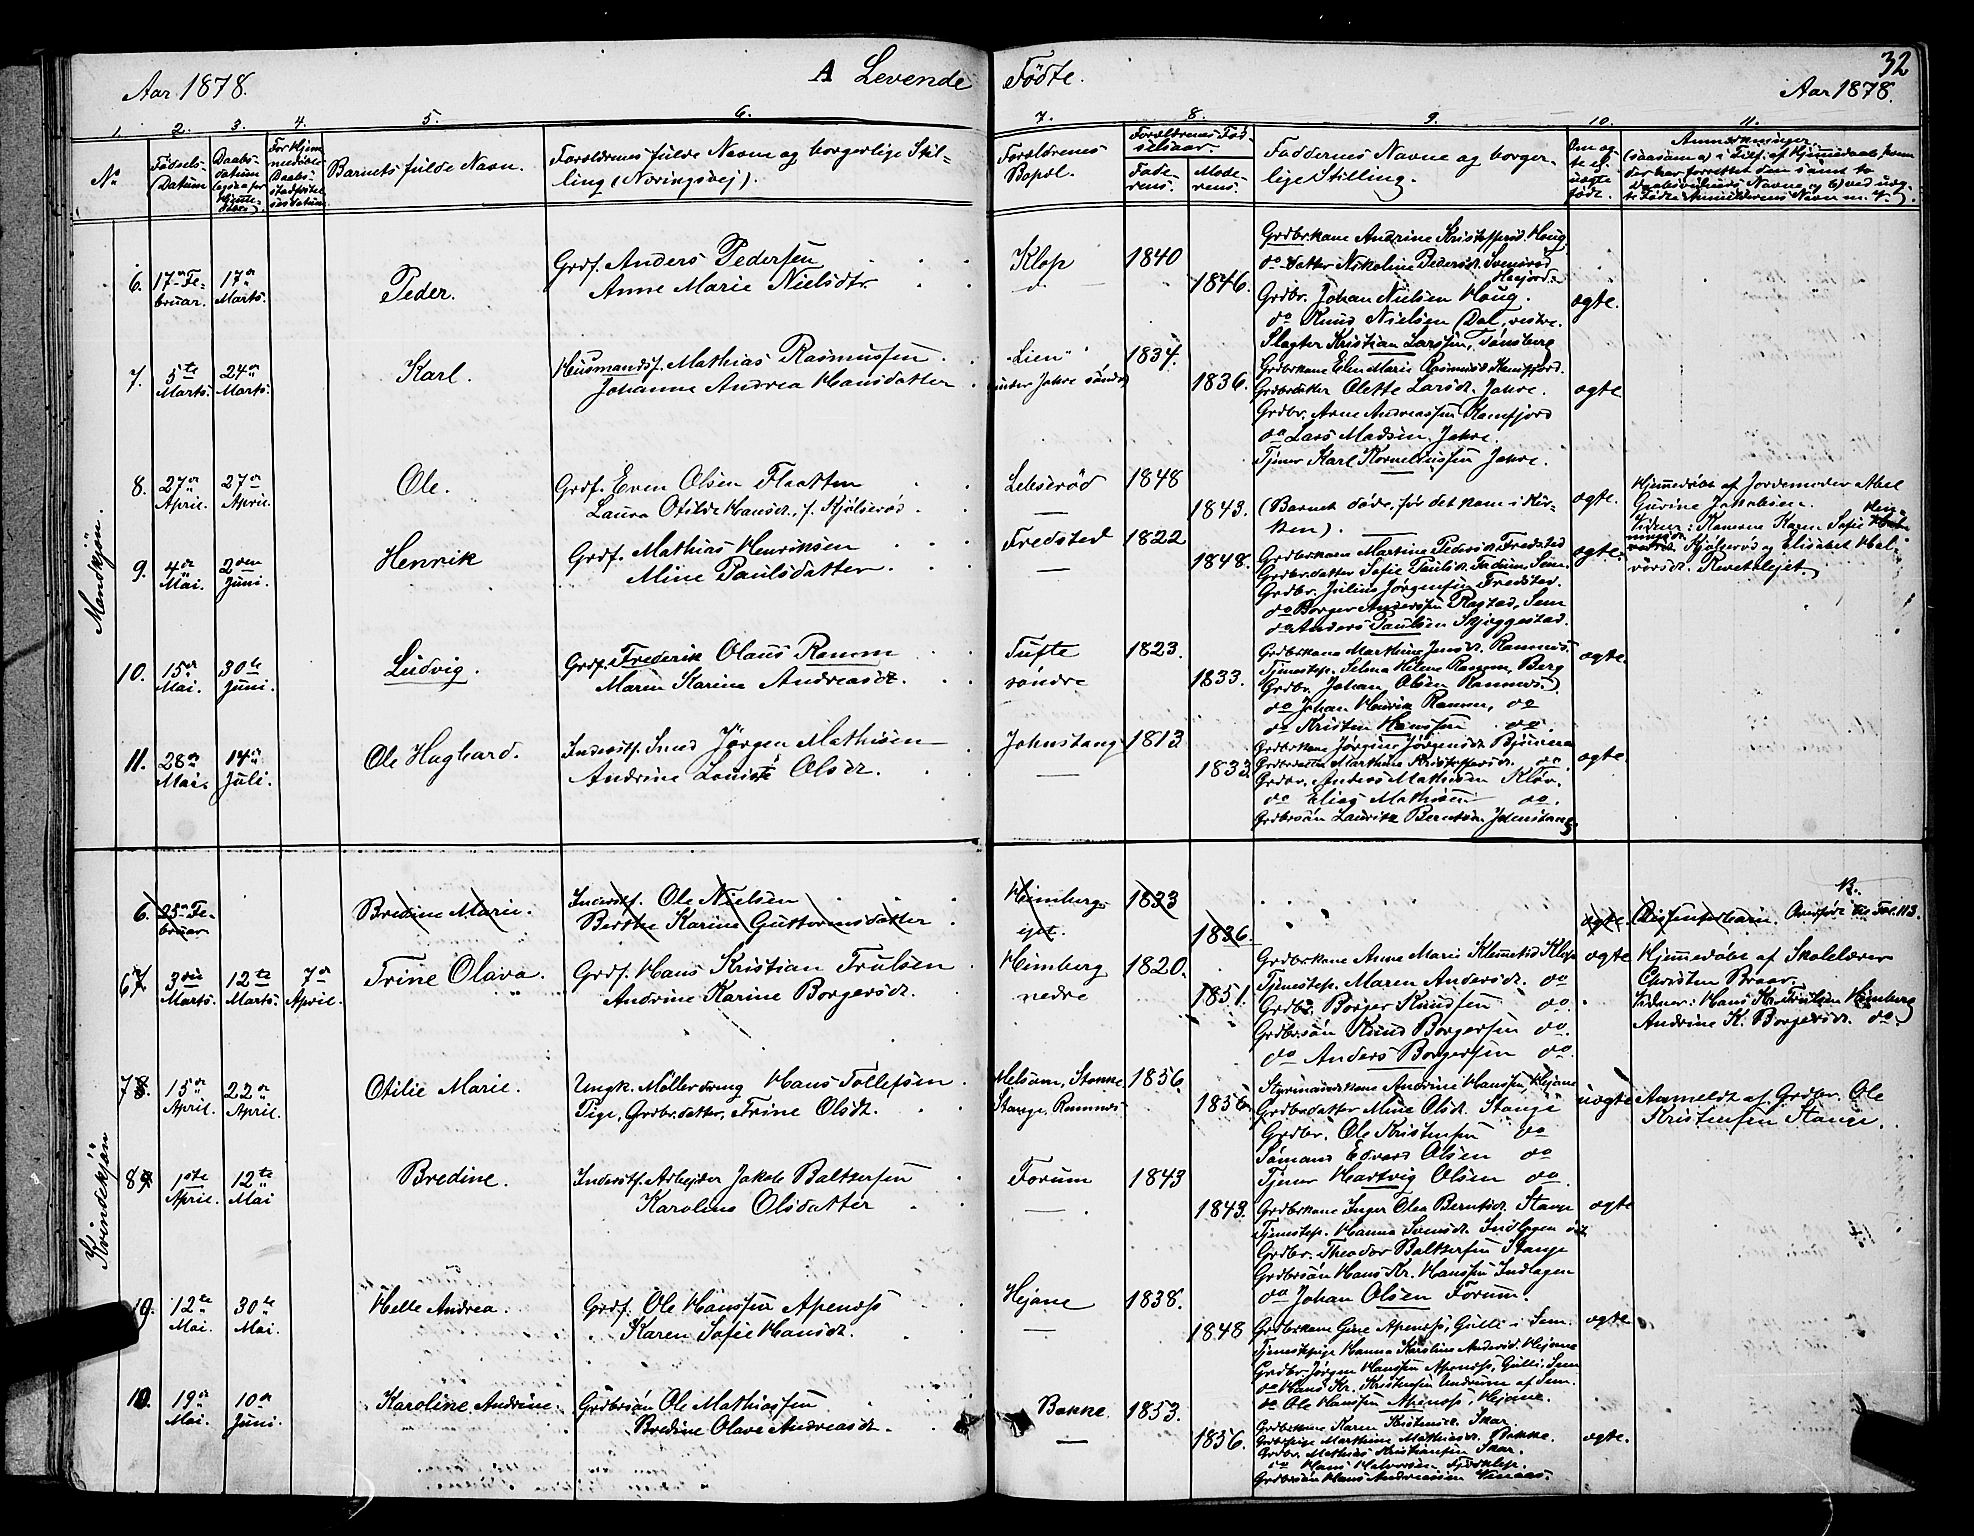 Aar 1878.
A Levende Födte.
32
Aar 1878.
1. 2. 3. 4. 5. 6. 7. 8. 9. 10. 11.
No
Födsels-
Datum
Daabs-
datum
Barnets fulde Navn.
Forældrenes fulde Navne og borgerlige Stil-
ling (Næringsvej).
Forældrenes
Bopæl.
Forældrenes Föd-
selsaar.
Fade-
rens.
Mode-
rens.
Faddernes Navne og borger-
lige Stilling.
Om æg-
te el.
uægte
födt.
Anmærkninger
Mandkjön.
6. 17de Fe-
bruar.
17de
Marts.
Peder.
Grdf. Anders Pedersen
Anne Marie Nielsdtr.
Klop
1840
1846.
Grdbrkone Andrine Kristoffersd. Houg
do datter Nikoline Pedersdt.
Grdbr. Johan Nielsen Houg.
do Knud Nielsen Dal, vestre.
Slagter Kristian Larssen, Tönsberg
ægte.
7. 5te
Marts.
24de
Marts.
Karl.
Husmandsf. Mathias Rasmussen
Johanne Andrea Hansdatter
Lien
under Jahre söndre
1834.
1836.
Grdbrkone Elen Marie Rasmusd. Kamfjord.
Grdbrdatter Olette Larsdt. Jahre.
Grdbr. Arne Andreassen Kamfjord
do Lars Madsen, Jahre.
Tjener Karl Korneliussen Jahre.
ægte
8. 27de
April.
27de
April.
Ole.
Grdf. Even Olsen Flaatten
Laura Otilde Hansdt., f. Kjölseröd
Lebseröd
1848
1843.
(Barnet döde, för det kom i Kir-
ken).
ægte.
Hjemmedöbt af Jordemoder Abel
Gurine Jakobsen.
Vidner: Konerne Karen Sofie
Kjölseröd og Elisabet Hal-
vorsdt. Kvetslejet.
9. 4de
Mai.
2den
Juni.
Henrik
Grdf. Mathias Henriksen
Mine Paulsdatter
Fredsted
1822
1848.
Grdbrkone Martine Pedersdt. Fredsted
Grdbrdatter Sofie Paulsdt. Fadum, Sem.
Grdbr. Julius Jörgensen Fredsted.
do Borger Anderssen Ragstad, Sem
do Anders Paulsen Skjeggestad.
ægte.
10. 15de
Mai.
30te
Juni.
Ludvig.
Grdf. Frederik Olaus Ramm
Maren Karine Andreasdt.
Tufte
söndre
1823.
1833.
Grdbrkone Marthine Jensdt. Ramnes
Tjenestep. Selma Helene Ramm, Berg
Grdbr. Johan Olsen Ramnes.
do Johan Henrik Ramm, do
do Kristen Hanssen do.
ægte.
11. 28de
Mai.
14de
Juli.
Ole Hagbard.
Inderstf. Smed Jörgen Mathisen
Andrine Louise Olsdt.
Johnstang
1813
1833.
Grdbrkone Jörgine Jörgensdt. Bjuerö
Grdbrdatter Marthine Kristoffersdt. do
Grdbr. Anders Mathisen Klöv.
do Elias Mathisen do.
Grdbrsön Lauritz Berntsen Johnstang
ægte.
Kvindekjön
6. 25de Fe-
bruar
Bredine Marie.
Inderstf. Ole Nielsen
Berthe Karine Guttormsdatter
Himberg
1823
1836.
ægte.
Dissenterbarn. Overfört til Fol. 113.
67. 3die
Marts.
12te
Marts.
7de
April.
Trine Olava.
Grdf. Hans Kristian Trulsen
Andrine Karine Borgersdt.
Himberg
nedre
1820.
1851.
Grdbrkone Anne Marie Klemetsd. Klop
Tjenestep. Maren Andersdt. do
Grdbr. Borger Knudsen do.
Grdbrsön Knud Borgersen do.
do Anders Borgersen do.
ægte
Hjemmedöbt af Skolelærer
Christen Braar.
Vidner: Hans Kr. Trulsen Himberg
Andrine K. Borgersdt. do.
78. 15de
April.
22de
April.
Otilie Marie.
Ungk. Möllerdreng Hans Tollefsen
Pige, Grdbrdatter, Trine Olsdt.
Melsom, Stokke
Stange, Ramnes
1856.
1856
Styrmandskone Andrine Hansen, Hejane
Grdbrdatter Mine Olsdt. Stange
Grdbr. Ole Kristensen do
Sömand Edvard Olsen do
Tjener Hartvig Olsen do.
uægte
Anmeldt af Grdbr. Ole
Kristensen Stange.
89. 1ste
April.
12te
Mai
Bredine.
Inderstf. Arbejder Jakob Baltsersen
Karoline Olsdatter
Forum
1843
1843.
Grdbrkone Inger Olea Berntsdt. Stange
Tjenestep. Hanna Svensdt. Indlagen
Grdbr. Theodor Baltsersen Stange
Grdbrsön Hans Kr. Hanssen Indlagen
do Johan Olsen Forum.
ægte
19. 12te
Mai.
30te
Mai.
Helle Andrea.
Grdf. Ole Hanssen Apenæss
Karen Sofie Hansdt.
Hejane
1838.
1848
Grdbrkone Gine Apenæss, Gulli i Sem.
Tjenestepige Hanna Karoline Andersd. Hejane
Grdbr. Jörgen Hanssen Apenæss, Gulli, Sem
do Hans Kr. Kristensen Undrum af Sem.
do Ole Hanssen Apenæss, Hejane.
ægte
10. 19de
Mai.
10de
Juni.
Karoline Andrine.
Grdbrsön Ole Mathiassen
Bredine Olave Andreasdt.
Bakke
1853.
1856.
Grdbrkone Karen Kristensdt. Skar.
Grdbrpige Marthine Mathiasdt. Bakke.
Grdbr. Mathias Kristiansen Skar.
do Hans Halvorsen
Grdbrsön Hans Andreassen Vennaas.
ægte.